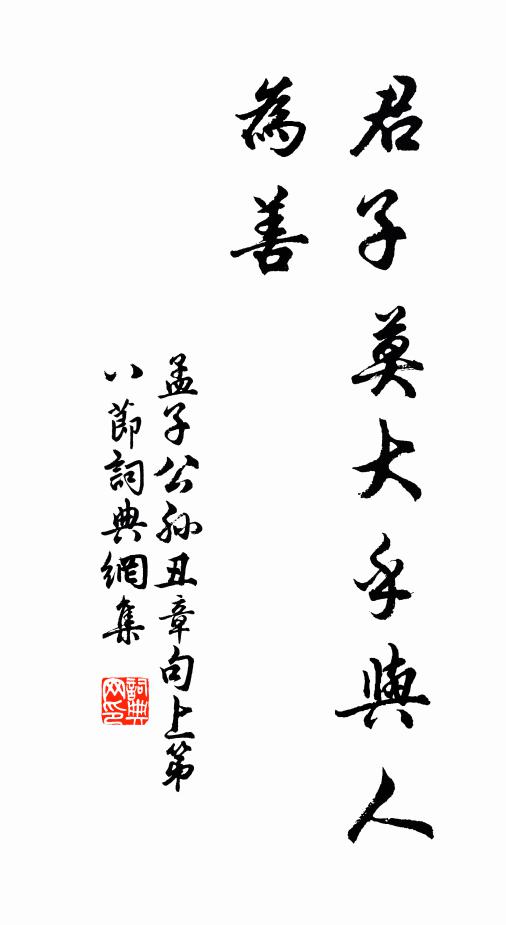 君子莫大乎與人
為善
孟子公孫丑章句上第
八節詞典網集
詞典
网印